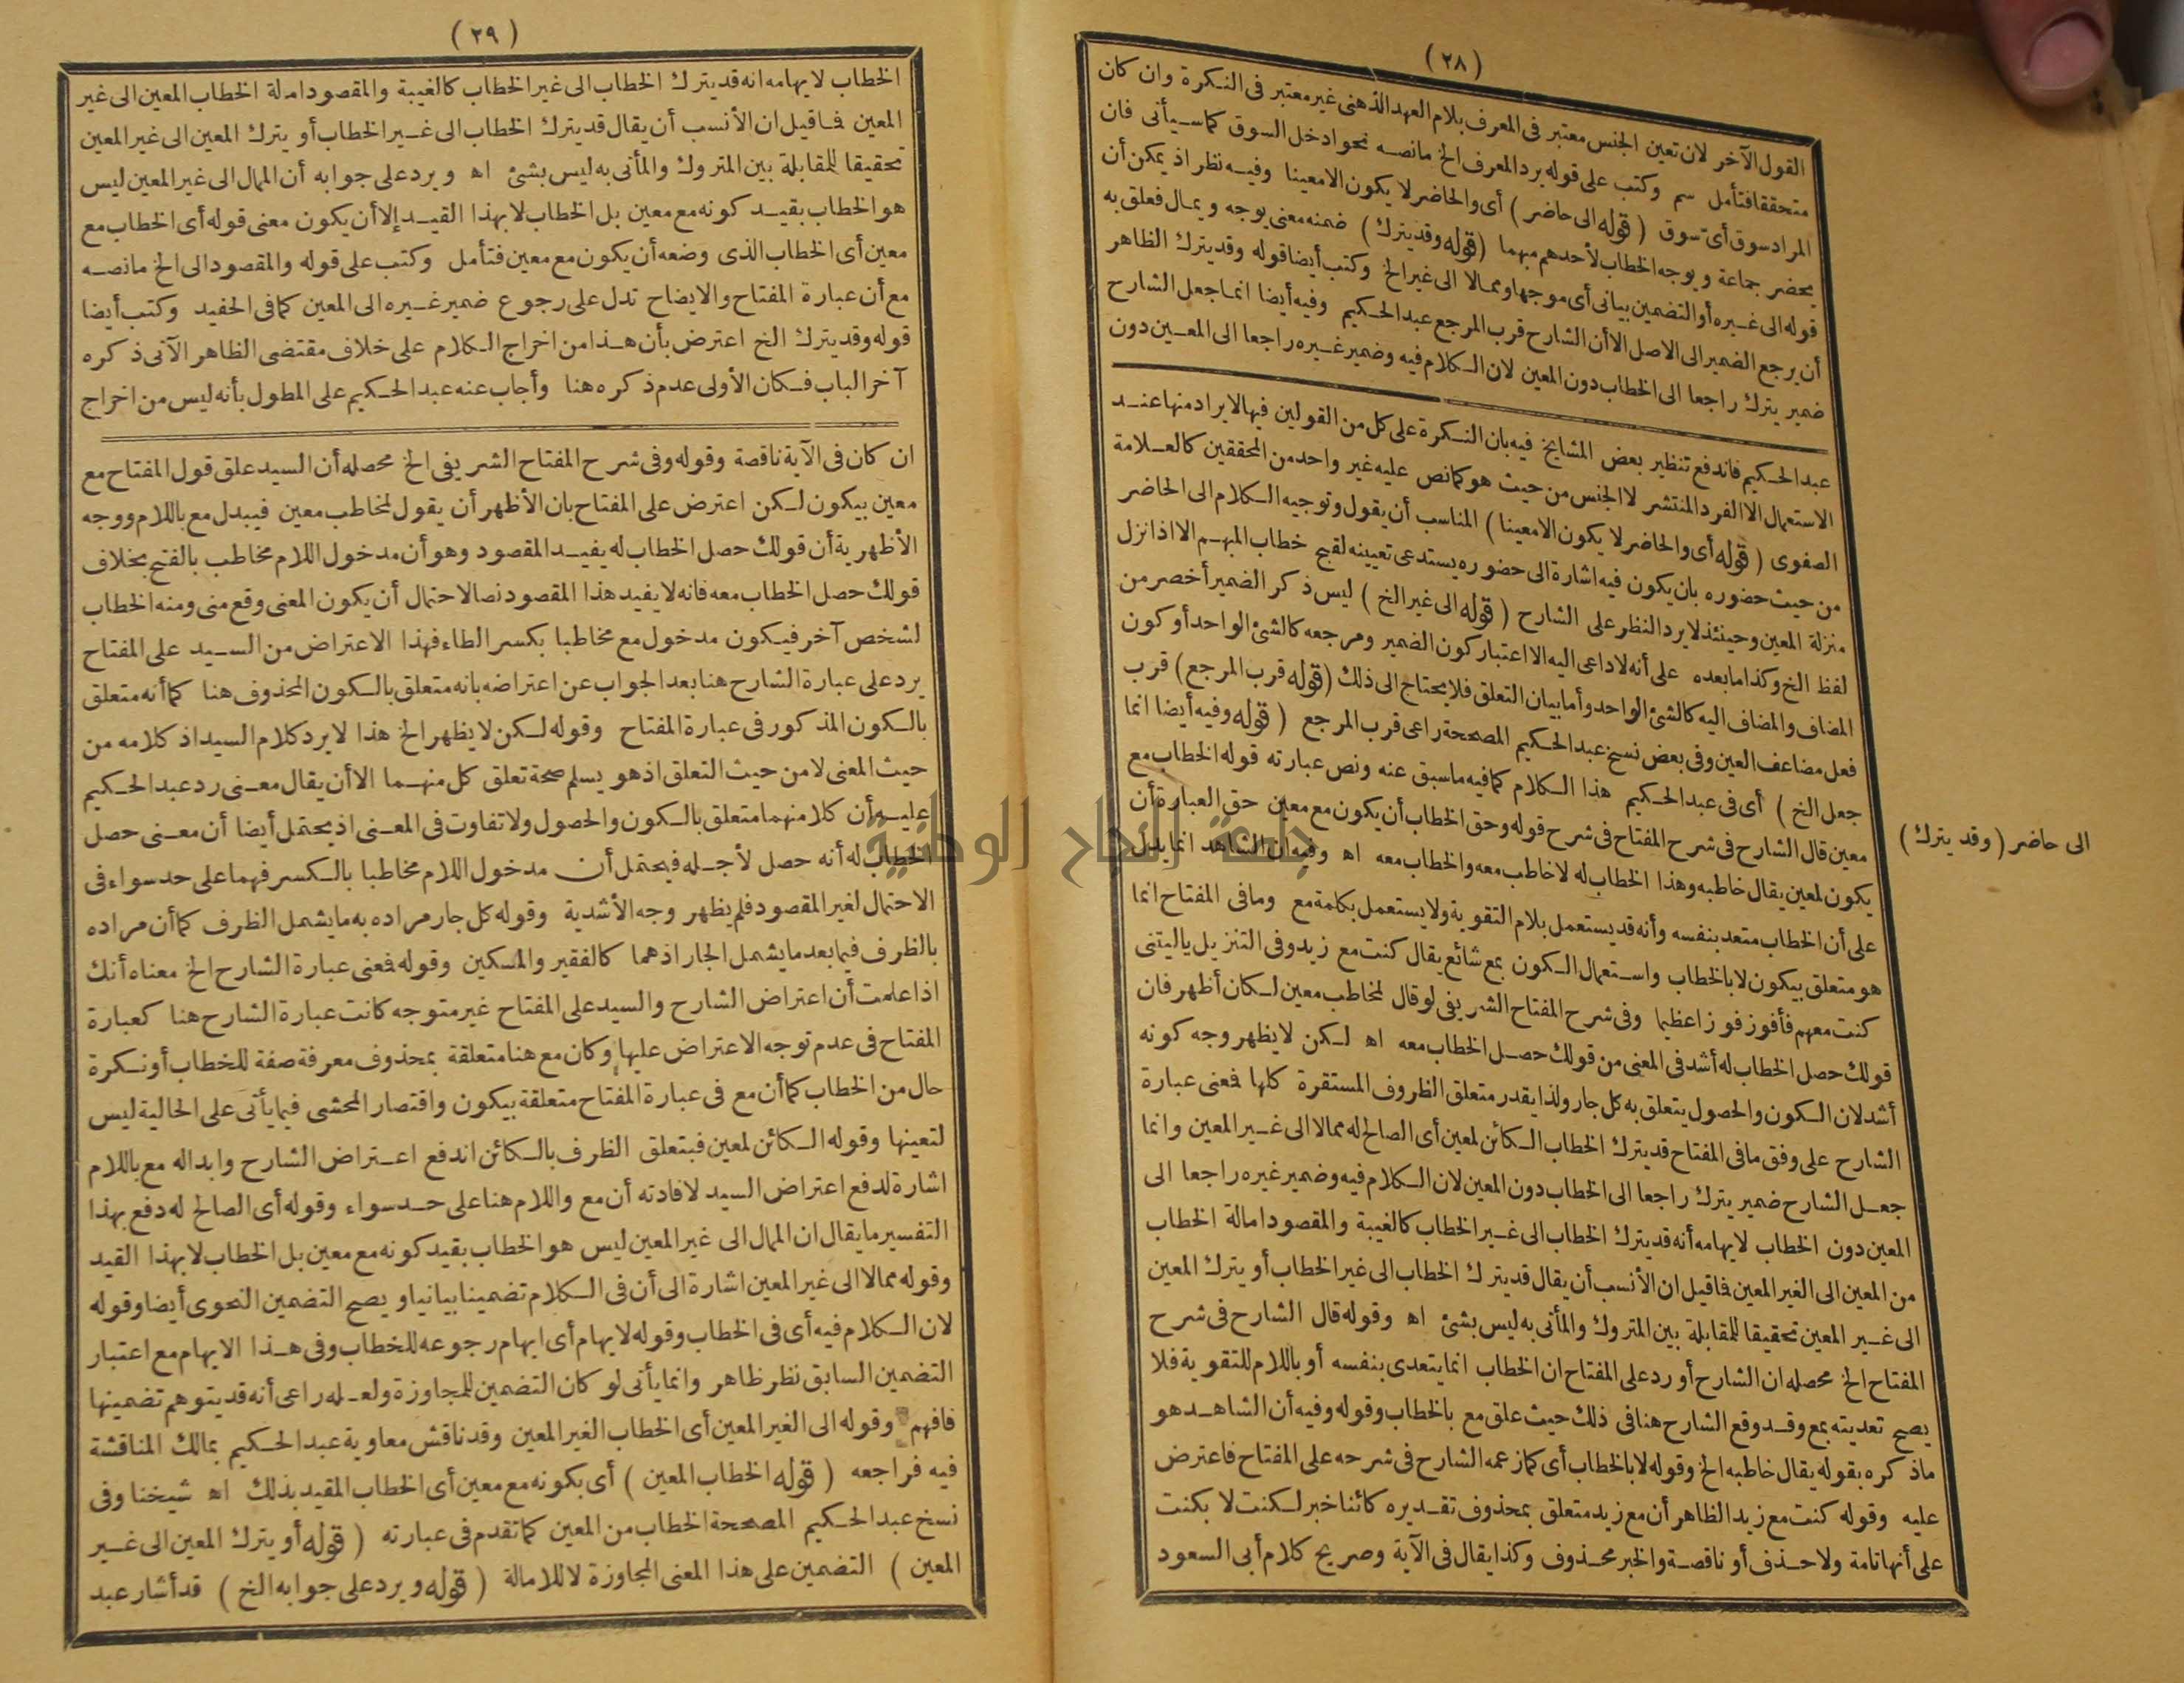 ( ٢٨ )
القول الآخر لان تعين الجنس معتبر فى المعرف بلام العهد الذهنى غير معتبر فى النكرة وان كان
متحققا فتأمل سم وكتب على قوله يرد المعرف الخ ما نصه نحو ادخل السوق كما سيأتى فان
المراد سوق أى سوق ( قوله الى حاضر ) أى والحاضر لا يكون الا معينا وفيه نظر اذ يمكن أن
يحضر جماعة ويوجه الخطاب لأحدهم مبهما ( قوله وقد يترك ) ضمنه معنى يوجه ويمال فعلق به
قوله الى غيره أو التضمين بيانى أى موجها وممالا الى غير الخ وكتب أيضا قوله وقد يترك الظاهر
أن يرجع الضمير الى الاصل الا أن الشارح قرب المرجع عبد الحكيم وفيه أيضا انما جعل الشارح
ضمير يترك راجعا الى الخطاب دون المعين لان الكلام فيه وضمير غيره راجعا الى المعين دون
عبد الحكيم فاندفع تنظير بعض المشايخ فيه بان النكرة على كل من القولين فيها لا يراد منها عند
الاستعمال الا الفرد المنتشر لا الجنس من حيث هو كما نص عليه غير واحد من المحققين كالعلامة
الصفوى ( قوله أى والحاضر لا يكون الا معينا ) المناسب أن يقول وتوجيه الكلام الى الحاضر
من حيث حضوره بان يكون فيه اشارة الى حضوره يستدعى تعيينه لقبح خطاب المبهم الا اذا نزل
منزلة المعين وحينئذ لا يرد النظر على الشارح ( قوله الى غير الخ ) ليس ذكر الضمير أخصر من
لفظ الخ وكذا ما بعده على أنه لا داعى اليه الا اعتبار كون الضمير ومرجعه كالشئ الواحد أو كون
المضاف والمضاف اليه كالشئ الواحد وأما بيان التعلق فلا يحتاج الى ذلك ( قوله قرب المرجع ) قرب
فعل مضاعف العين وفى بعض نسخ عبد الحكيم المصححة راعى قرب المرجع ( قوله وفيه أيضا انما
جعل الخ ) أى فى عبد الحكيم هذا الكلام كما فيه ما سبق عنه ونص عبارته قوله الخطاب مع
معين قال الشارح فى شرح المفتاح فى شرح قوله وحق الخطاب أن يكون مع معين حق العبارة أن
الى حاضر ( وقد يترك )
يكون لمعين يقال خاطبه وهذا الخطاب له لا خاطب معه والخطاب معه اه وفيه ان الشاهد انما يدل
على أن الخطاب متعد بنفسه وأنه قد يستعمل بلام التقوية ولا يستعمل بكلمة مع وما فى المفتاح انما
هو متعلق بيكون لا بالخطاب واستعمال الكون بمع شائع يقال كنت مع زيد وفى التنزيل يا ليتنى
كنت معهم فأفوز فوزا عظيما وفى شرح المفتاح الشريفى لو قال لمخاطب معين لكان أظهر فان
قولك حصل الخطاب له أشد فى المعنى من قولك حصل الخطاب معه اه لكن لا يظهر وجه كونه
أشد لان الكون والحصول يتعلق به كل جار ولذا يقدر متعلق الظروف المستقرة كلها فمعنى عبارة
الشارح على وفق ما فى المفتاح قد يترك الخطاب الكائن لمعين أى الصالح له ممالا الى غير المعين وانما
جعل الشارح ضمير يترك راجعا الى الخطاب دون المعين لان الكلام فيه وضمير غيره راجعا الى
المعين دون الخطاب لايهامه أنه قد يترك الخطاب الى غير الخطاب كالغيبة والمقصود امالة الخطاب
من المعين الى الغير المعين فما قيل ان الأنسب أن يقال قد يترك الخطاب الى غير الخطاب أو يترك المعين
الى غير المعين تحقيقا للمقابلة بين المتروك والمأتى به ليس بشئ اه وقوله قال الشارح فى شرح
المفتاح الخ محصله ان الشارح أورد على المفتاح ان الخطاب انما يتعدى بنفسه أو باللام للتقوية فلا
يصح تعديته بمع وقد وقع الشارح هنا فى ذلك حيث علق مع بالخطاب وقوله وفيه أن الشاهد هو
ما ذكره بقوله يقال خاطبه الخ وقوله لا بالخطاب أى كما زعمه الشارح فى شرحه على المفتاح فاعترض
عليه وقوله كنت مع زيد الظاهر أن مع زيد متعلق بمحذوف تقديره كائنا خبر لكنت لا بكنت
على أنها تامة ولا حذف أو ناقصة والخبر محذوف وكذا يقال فى الآية وصريح كلام أبى السعود
( ٢٩ )
الخطاب لايهامه انه قد يترك الخطاب الى غير الخطاب كالغيبة والمقصود امالة الخطاب المعين الى غير
المعين فما قيل ان الأنسب أن يقال قد يترك الخطاب الى غير الخطاب أو يترك المعين الى غير المعين
تحقيقا للمقابلة بين المتروك والمأتى به ليس بشئ اه ويرد على جوابه أن الممال الى غير المعين ليس
هو الخطاب بقيد كونه مع معين بل الخطاب لا بهذا القيد إلا أن يكون معنى قوله أى الخطاب مع
معين أى الخطاب الذى وضعه أن يكون مع معين فتأمل وكتب على قوله والمقصود الى الخ ما نصه
مع أن عبارة المفتاح والايضاح تدل على رجوع ضمير غيره الى المعين كما فى الحفيد وكتب أيضا
قوله وقد يترك الخ اعترض بأن هذا من اخراج الكلام على خلاف مقتضى الظاهر الآتى ذكره
آخر الباب فكان الأولى عدم ذكره هنا وأجاب عنه عبد الحكيم على المطول بأنه ليس من اخراج
ان كان فى الآية ناقصة وقوله وفى شرح المفتاح الشريفى الخ محصله أن السيد علق قول المفتاح مع
معين بيكون لكن اعترض على المفتاح بان الأظهر أن يقول لمخاطب معين فيبدل مع باللام ووجه
الأظهرية أن قولك حصل الخطاب له يفيد المقصود وهو أن مدخول اللام مخاطب بالفتح بخلاف
قولك حصل الخطاب معه فانه لا يفيد هذا المقصود نصا لاحتمال أن يكون المعنى وقع منى ومنه الخطاب
لشخص آخر فيكون مدخول مع مخاطبا بكسر الطاء فهذا الاعتراض من السيد على المفتاح
يرد على عبارة الشارح هنا بعد الجواب عن اعتراضه بانه متعلق بالكون المحذوف هنا كما أنه متعلق
بالكون المذكور فى عبارة المفتاح وقوله لكن لا يظهر الخ هذا لا يرد كلام السيد اذ كلامه من
حيث المعنى لا من حيث التعلق اذ هو يسلم صحة تعلق كل منهما الا أن يقال معنى رد عبد الحكيم
عليه أن كلا منهما متعلق بالكون والحصول ولا تفاوت فى المعنى اذ يحتمل أيضا أن معنى حصل
الخطاب له أنه حصل لأجله فيحتمل أن مدخول اللام مخاطبا بالكسر فهما على حد سواء فى
الاحتمال لغير المقصود فلم يظهر وجه الأشدية وقوله كل جار مراده به ما يشمل الظرف كما أن مراده
بالظرف فيما بعد ما يشمل الجار اذ هما كالفقير والمسكين وقوله فمعنى عبارة الشارح الخ معناه أنك
اذا علمت أن اعتراض الشارح والسيد على المفتاح غير متوجه كانت عبارة الشارح هنا كعبارة
المفتاح فى عدم توجه الاعتراض عليها وكان مع هنا متعلقة بمحذوف معرفة صفة للخطاب أو نكرة
حال من الخطاب كما أن مع فى عبارة المفتاح متعلقة بيكون واقتصار المحشى فيما يأتى على الحالية ليس
لتعينها وقوله الكائن لمعين فبتعلق الظرف بالكائن اندفع اعتراض الشارح وابداله مع باللام
اشارة لدفع اعتراض السيد لافادته أن مع واللام هنا على حد سواء وقوله أى الصالح له دفع بهذا
التفسير ما يقال ان الممال الى غير المعين ليس هو الخطاب بقيد كونه مع معين بل الخطاب لا بهذا القيد
وقوله ممالا الى غير المعين اشارة الى أن فى الكلام تضمينا بيانيا ويصح التضمين النحوى أيضا وقوله
لان الكلام فيه أى فى الخطاب وقوله لايهام أى ايهام رجوعه للخطاب وفى هذا الايهام مع اعتبار
التضمين السابق نظر ظاهر وانما يأتى لو كان التضمين للمجاوزة ولعله راعى أنه قد يتوهم تضمينها
فافهم وقوله الى الغير المعين أى الخطاب الغير المعين وقد ناقش معاوية عبد الحكيم بمالك المناقشة
فيه فراجعه ( قوله الخطاب المعين ) أى بكونه مع معين أى الخطاب المقيد بذلك اه شيخنا وفى
نسخ عبد الحكيم المصححة الخطاب من المعين كما تقدم فى عبارته ( قوله أو يترك المعين الى غير
المعين ) التضمين على هذا المعنى المجاوزة لا للامالة ( قوله ويرد على جوابه الخ ) قد أشار عبد
جامعة النجاح الوطنية